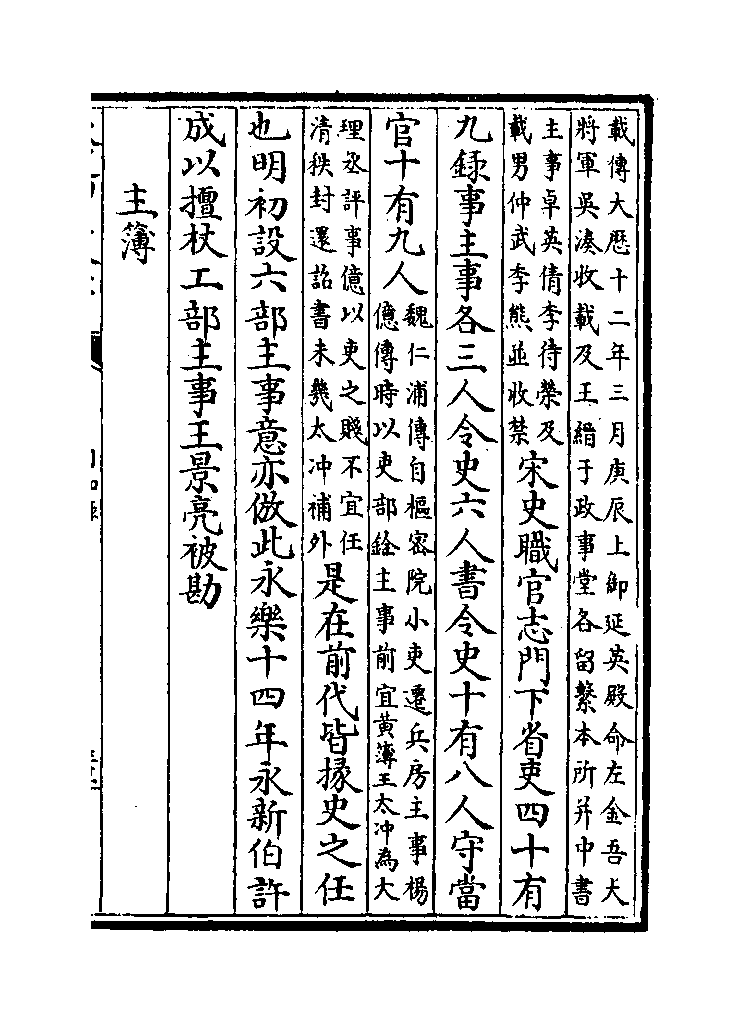 載傳大厯十二年三月庚辰上御延英殿命左金吾大
將軍吳湊收載及王縉于政事堂各留繫本所并中書
主事卓英倩李待榮及
載男仲武李熊並收禁
宋史職官志門下省吏四十有
九錄事主事各三人令史六人書令史十有八人守當
官十有九人
魏仁浦傳自樞密院小吏遷兵房主事楊
億傳時以吏部銓主事前宜黃簿王太冲為大
理丞評事億以吏之賤不宜任
清秩封還詔書未幾太冲補外
是在前代皆掾史之任
也明初設六部主事意亦倣此永樂十四年永新伯許
成以擅杖工部主事王景亮被勘
主簿